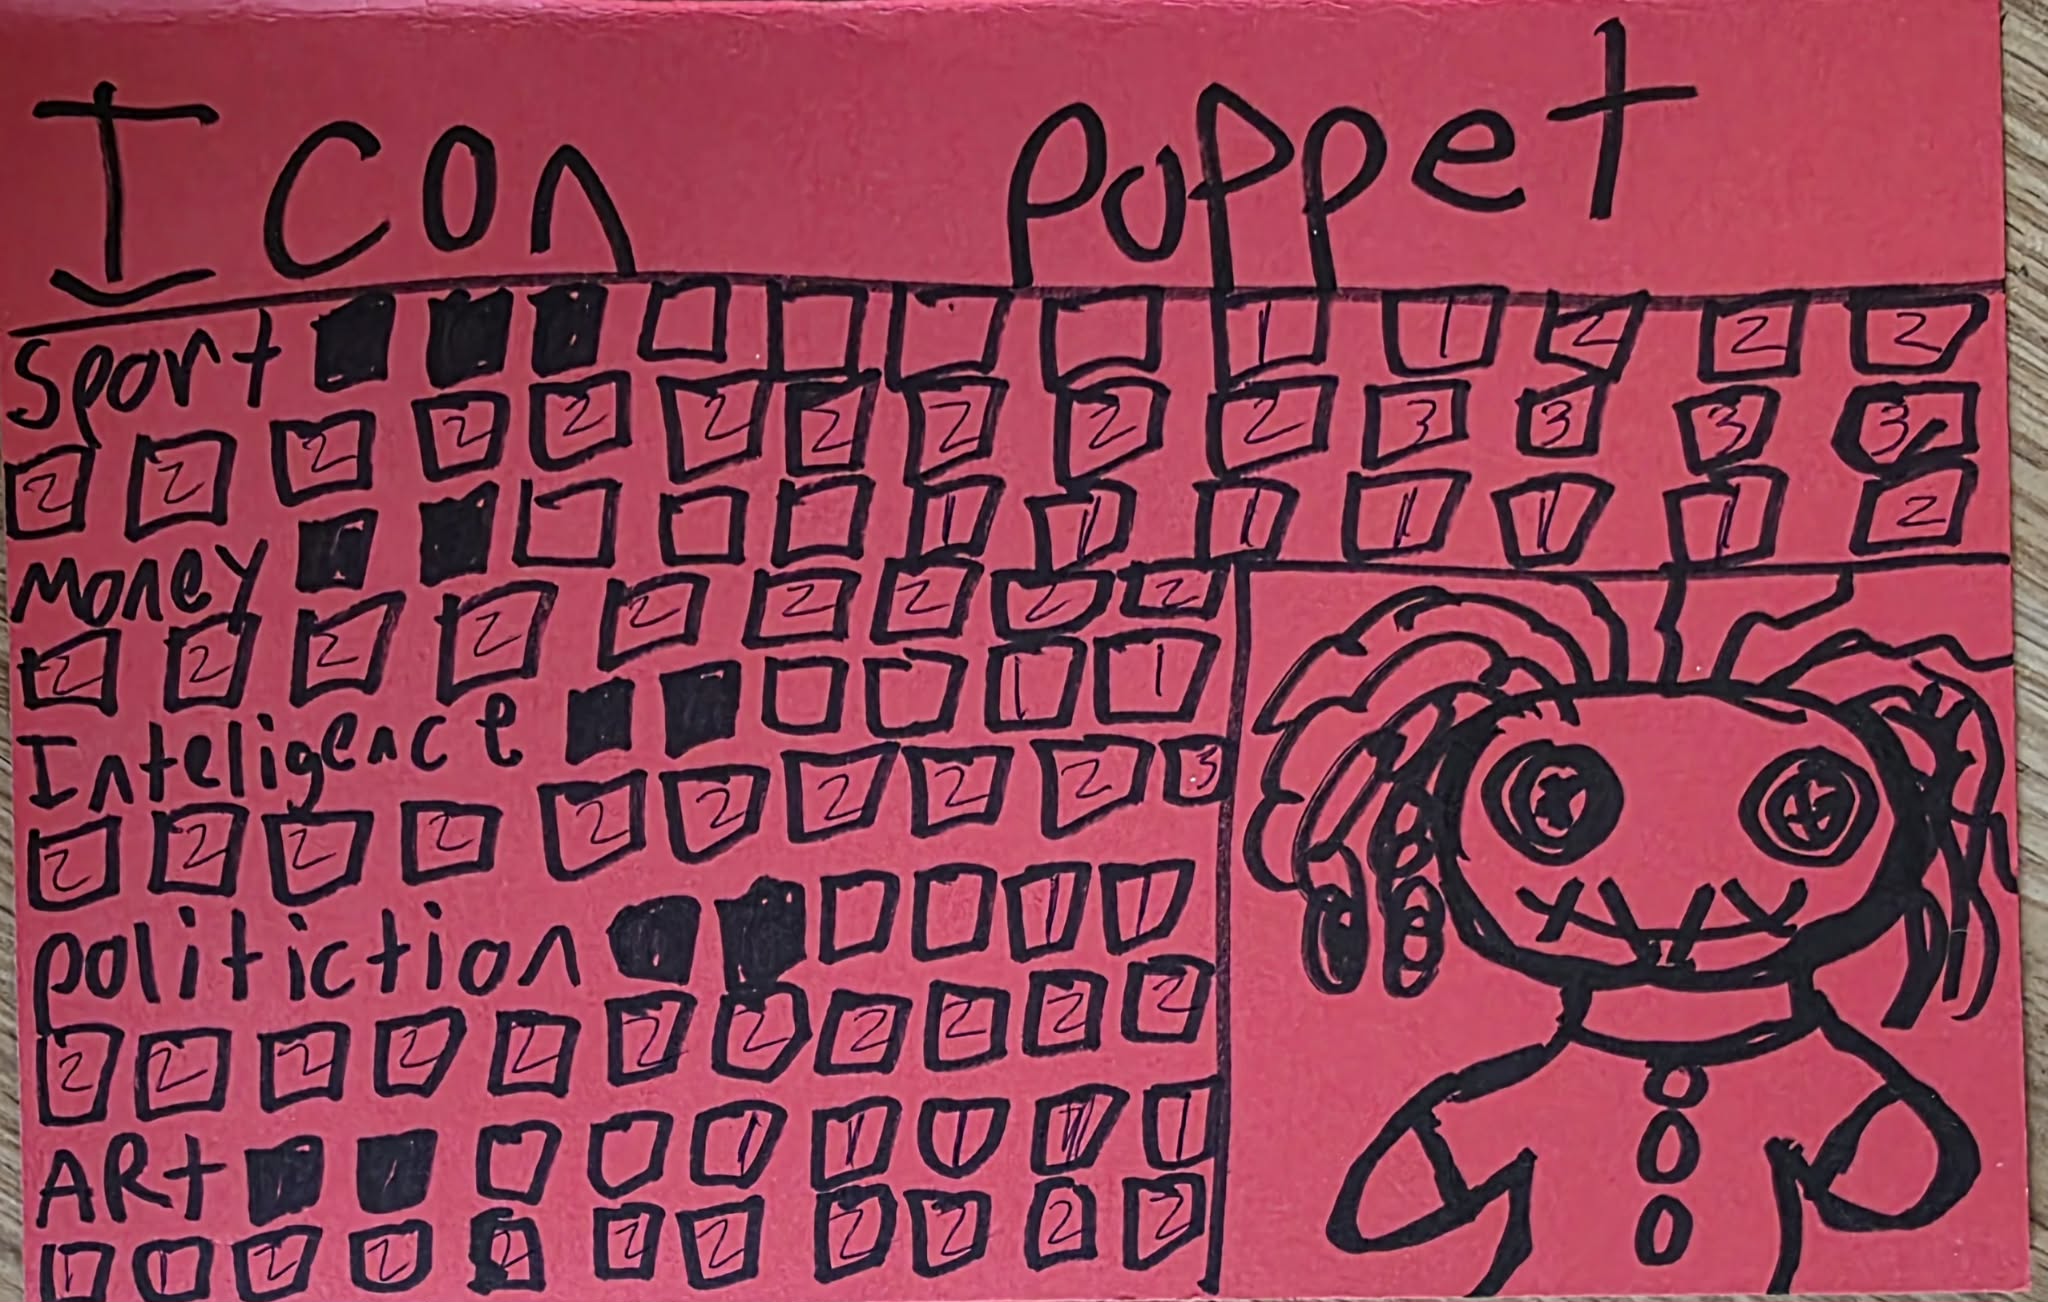 Icon puppet
Sport 1 1 2 2 2
2 2 2 2 2 2 2 2 2 2 3 3 3 3
Money 1 1 1 1 1 1 2
2 2 2 2 2 2 2 2 2
Inteligence 1 1
2 2 2 2 2 2 2 2 2 3
politiction 1 1
2 2 2 2 2 2 2 2 2 2 2
ARt 1 1 1 1 1
1 1 2 2 2 2 2 2 2 2 2